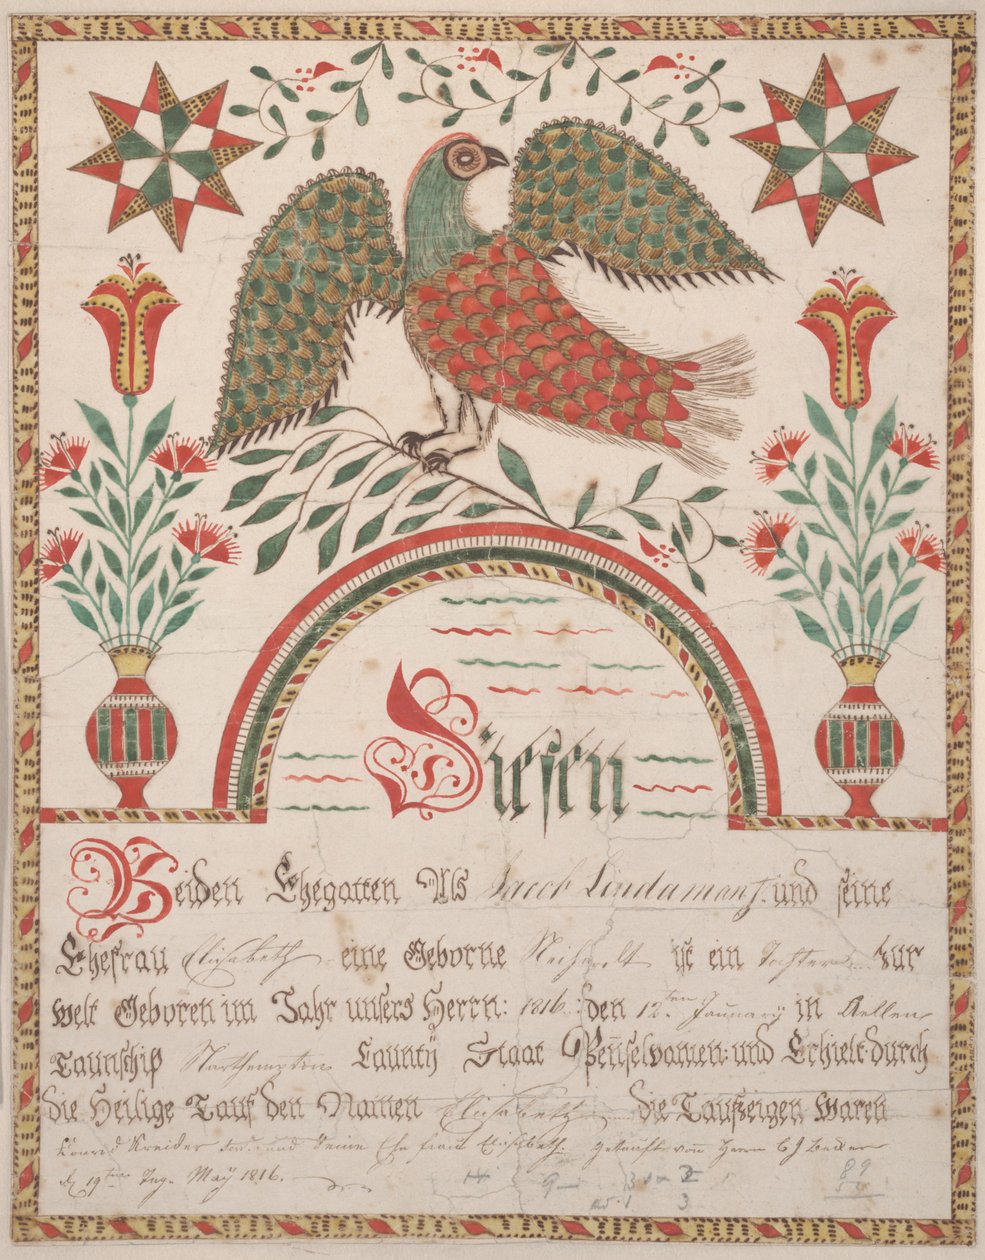 Diesen
Beiden Ehegatten Als Jacob Lindaman J. und seine
Ehefrau Elisabeth eine Geborne Neihardt ist ein Tochter zur
welt Geboren im Jahr unsers Herrn: 1816: den 12ten Januarÿ in Aellen
Taunschip Northempton Cauntÿ Staat Penselvanien: und Erhielt durch
die Heilige Tauf den Namen Elisabeth die Taufzeigen Waren
Kreider und Seine Ehe frau Elisabeth. getauft von Herrn C J Becker
d 19ten Tag. May 1816.
89